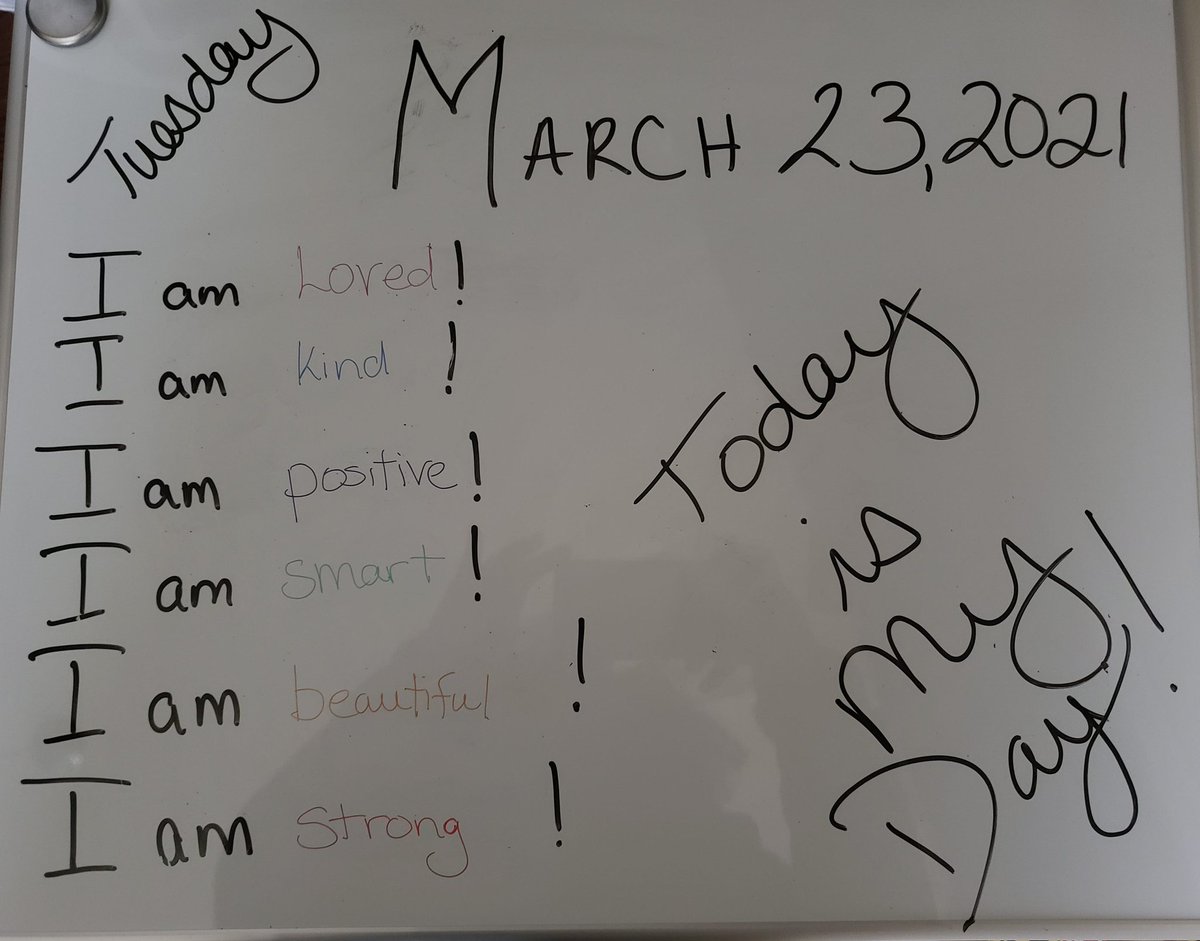 Tuesday
March 23, 2021
I am Loved!
I am kind!
I am positive!
I am smart!
I am beautiful!
I am Strong!
Today
is
My
Day!